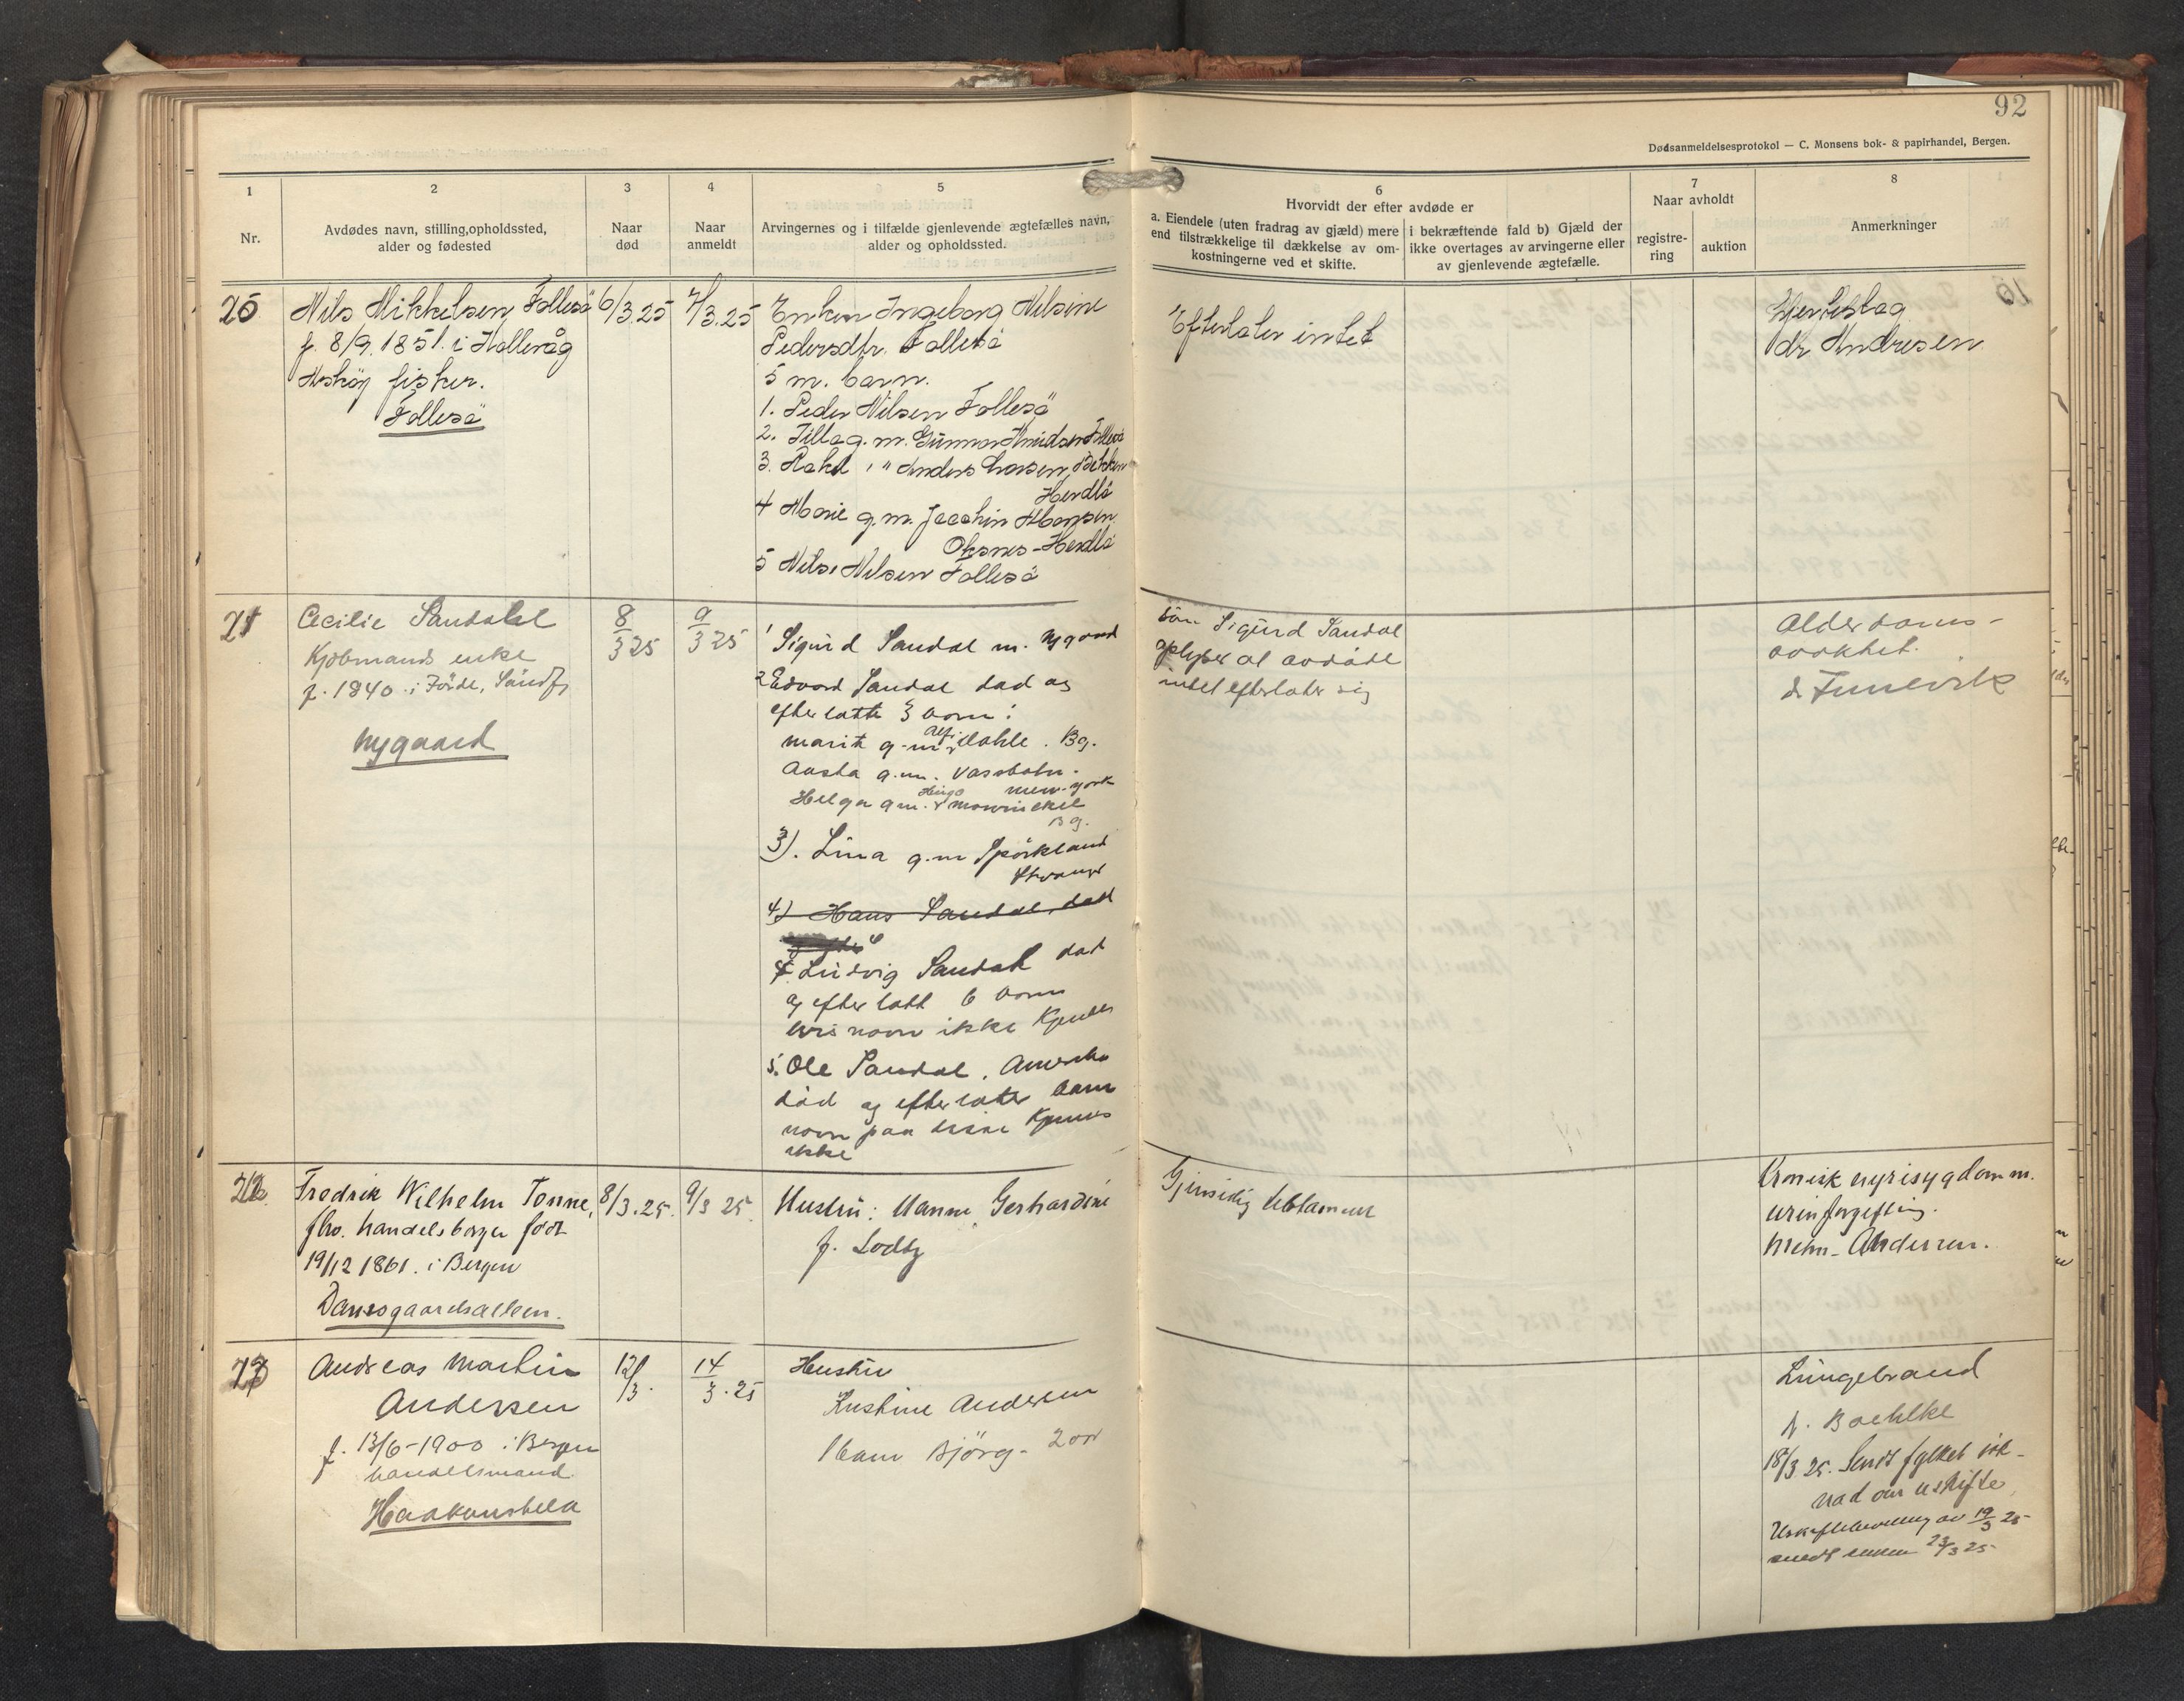 92
Dødsanmeldelsesprotokol — C. Monsens bok- & papirhandel, Bergen.
1
Nr.
2
Avdødes navn, stilling, opholdssted,
alder og fødested
3
Naar
død
4
Naar
anmeldt
5
Arvingernes og i tilfælde gjenlevende ægtefælles navn,
alder og opholdssted.
6
Hvorvidt der efter avdøde er
a. Eiendele (uten fradrag av gjæld) mere
end tilstrækkelige til dækkelse av om-
kostningerne ved et skifte.
i bekræftende fald b) Gjæld der
ikke overtages av arvingerne eller
av gjenlevende ægtefælle.
7
Naar avholdt
registre-
ring
auktion
8
Anmerkninger
Nils Mikkelsen Follesö
f. 8/9. 1851. i Hallevåg
Askøy fisker.
Follesö
6/3.25
7/3.25
Enken Ingeborg Nilsine
Pedersdtr. Follesö
5 m. barn.
1. Peder Nilsen Follesö
2. Tilla g. m. Gunnar Knudsen Follesö
3. Rakel " " Anders Larsen, Bekken
Herdla
4 Marie g. m. Joachin Hansen
Oksnes - Herdla
5 Nils Nilsen Follesö
Efterlater intet
Hjerteslag
dr Andresen
21
Cecilie Sandal
Kjøbmands enke
f. 1840 i Förde, Sundfj
Nygaard
8
3 25
9
3 25
1 Sigurd Sandal m. Nygaard
2 Edvard Sandal död og
efterlatte 3 barn:
Marit g. m. Alf Dahle. Bg.
Aasta g. m. Vassbotn.
New-York
Helga g m. Hugo Mowinckel
Bg.
3). Lina g. m Spörkland
Stavanger
4) Hans Sandal, død
4. Ludvig Sandal död
og efterlatt 6 barn
hvis navn ikke kjendes
5. Ole Sandal. Amerika
död og efterlater barn
navn paa disse kjendes
ikke
Sön Sigurd Sandal
oplyser at avdöde
intet efterlater sig
Alderdoms-
svakhet.
dr Tunevik
22
Fredrik Wilhelm Tonne,
fhv. handelsborger født
19/12 1861. i Bergen
Damsgaardsalleen.
8/3.25.
9/3 25
Hustru: Hanne Gerhardine
f. Lodtz
Gjensidig testament
Kronisk nyresygdom m.
urinforgiftning.
Mohn-Andersen.
23
Andreas Martin
Andersen
f. 13/6-1900 i Bergen
handelsmand
Haakonshella
12/3.
14
3.25
Hustru
Kristine Andersen
1 barn Bjørg - 2 aar
Lungebrand
dr. Boehlke
18/3 25. Sendt fylket sök-
nad om uskifte
Uskiftebevilling av 19/3 25
sendt enken 23/3 25